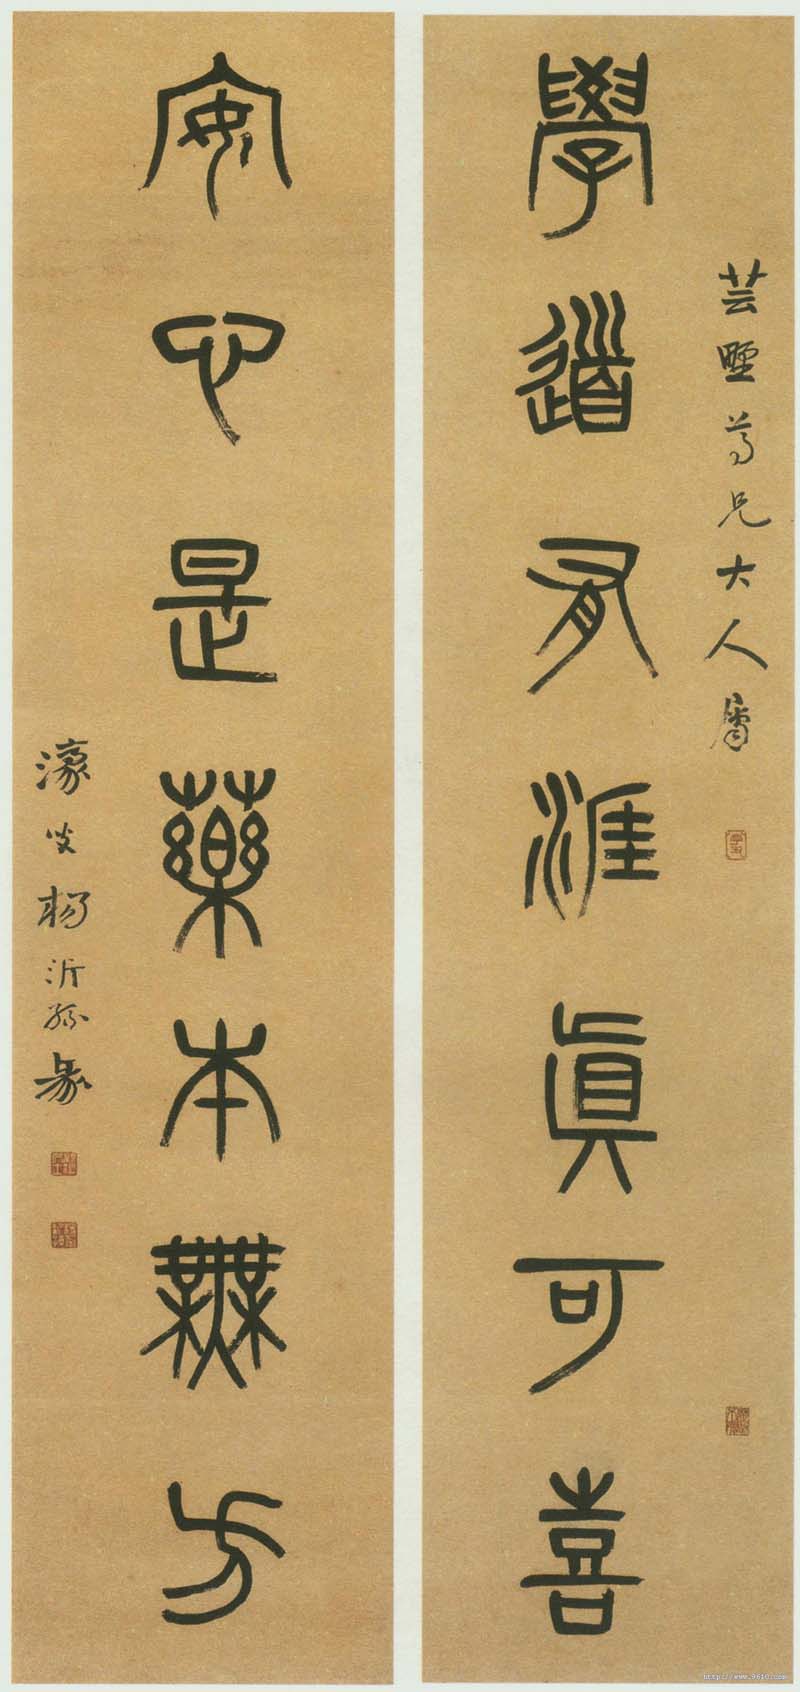 芸甄尊兄大人属
學道有涯真可喜
安心是藥本無方
濠叟楊沂孫篆
http://www.9610.com